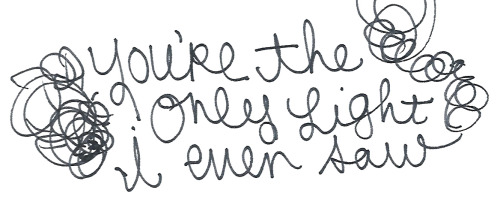 you're the
only light
i even saw